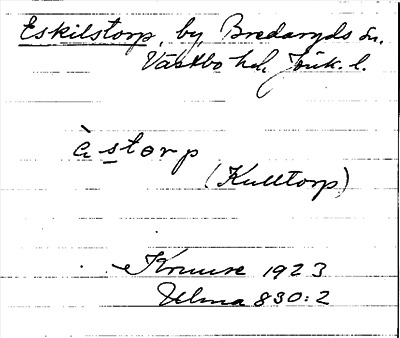 Eskilstorp, by, Bredaryds sn.
Västbo hd, Jönk. l.
è storp
(Kulltorp)
Kruuse 1923
Ulma 830:2